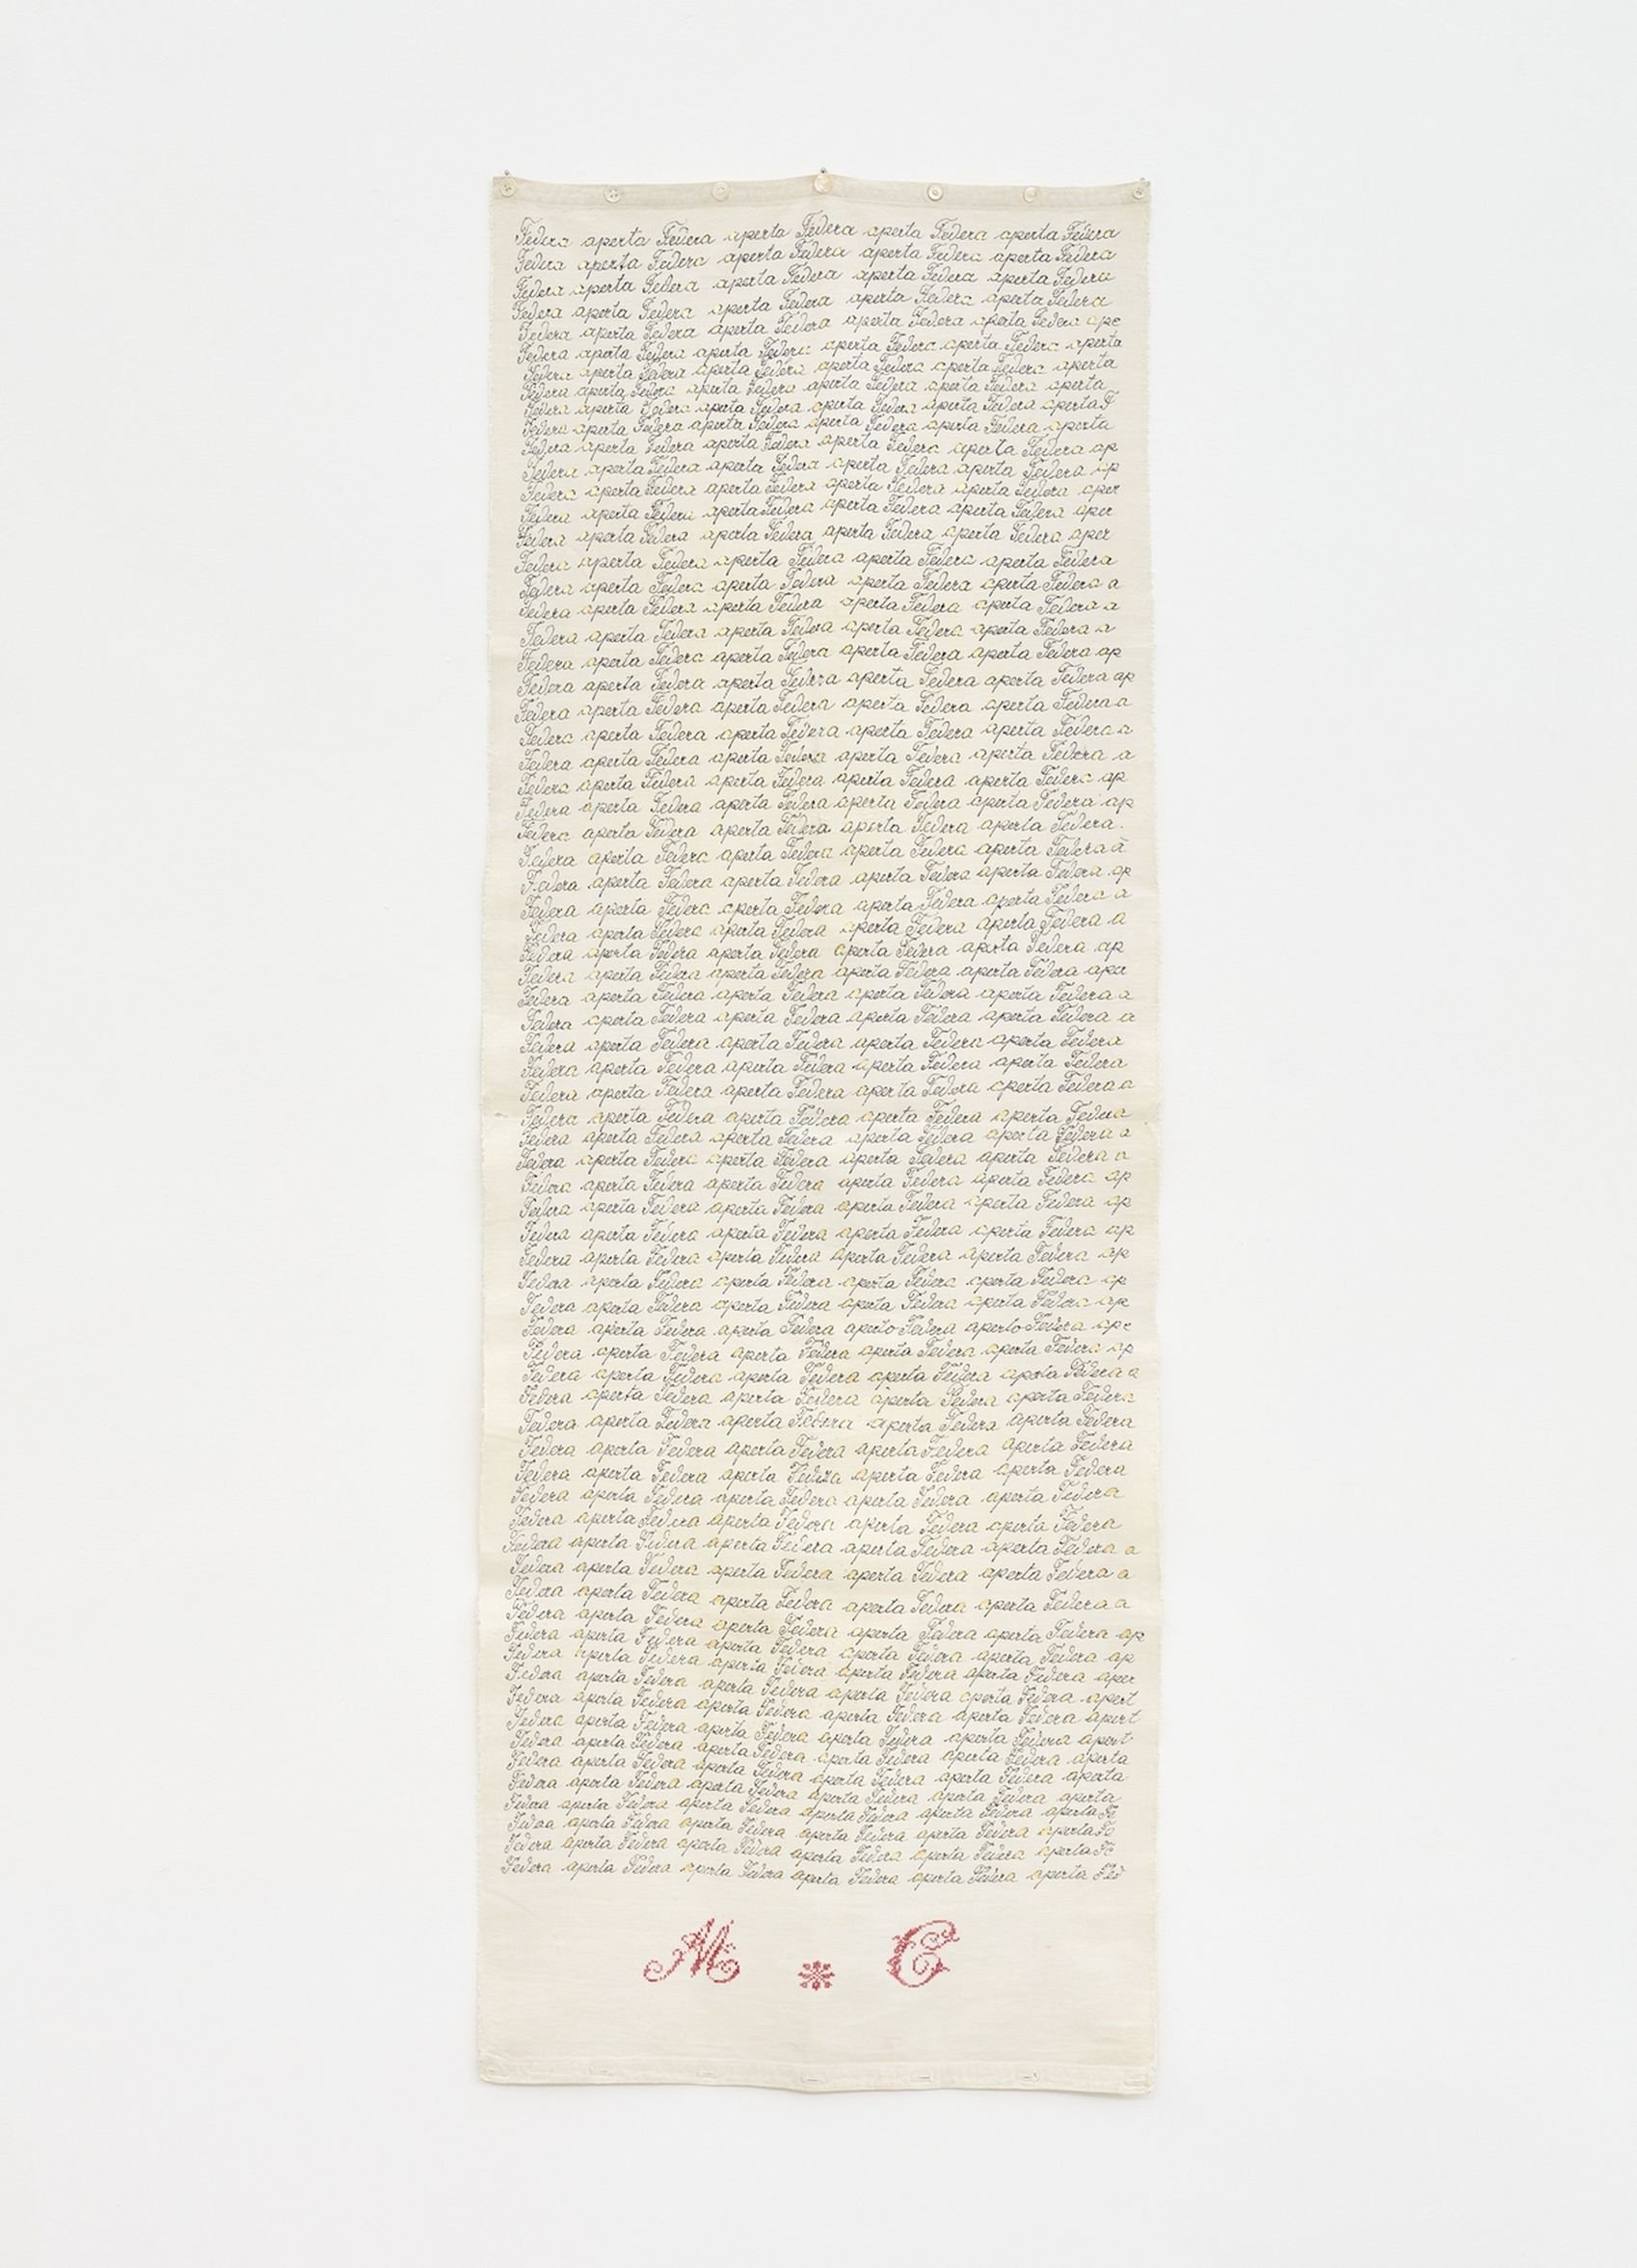 Federa aperta Federa aperta Federa aperta Federa aperta Federa
Federa aperta Federa aperta Federa aperta Federa aperta Federa
Federa aperta Federa aperta Federa aperta Federa aperta Federa
Federa aperta Federa aperta Federa aperta Federa aperta Federa
Federa aperta Federa aperta Federa aperta Federa aperta Federa ape
Federa aperta Federa aperta Federa aperta Federa aperta Federa aperta
Federa aperta Federa aperta Federa aperta Federa aperta Federa aperta
Federa aperta Federa aperta Federa aperta Federa aperta Federa aperta
Federa aperta Federa aperta Federa aperta Federa aperta Federa aperta F
Federa aperta Federa aperta Federa aperta Federa aperta Federa aperta
Federa aperta Federa aperta Federa aperta Federa aperta Federa ap
Federa aperta Federa aperta Federa aperta Federa aperta Federa ap
Federa aperta Federa aperta Federa aperta Federa aperta Federa aper
Federa aperta Federa aperta Federa aperta Federa aperta Federa aper
Federa aperta Federa aperta Federa aperta Federa aperta Federa aper
Federa aperta Federa aperta Federa aperta Federa aperta Federa
Federa aperta Federa aperta Federa aperta Federa aperta Federa a
Federa aperta Federa aperta Federa aperta Federa aperta Federa a
Federa aperta Federa aperta Federa aperta Federa aperta Federa a
Federa aperta Federa aperta Federa aperta Federa aperta Federa ap
Federa aperta Federa aperta Federa aperta Federa aperta Federa ap
Federa aperta Federa aperta Federa aperta Federa aperta Federa a
Federa aperta Federa aperta Federa aperta Federa aperta Federa a
Federa aperta Federa aperta Federa aperta Federa aperta Federa a
Federa aperta Federa aperta Federa aperta Federa aperta Federa ap
Federa aperta Federa aperta Federa aperta Federa aperta Federa ap
Federa aperta Federa aperta Federa aperta Federa aperta Federa.
Federa aperta Federa aperta Federa aperta Federa aperta Federa a
Federa aperta Federa aperta Federa aperta Federa aperta Federa ap
Federa aperta Federa aperta Federa aperta Federa aperta Federa a
Federa aperta Federa aperta Federa aperta Federa aperta Federa a
Federa aperta Federa aperta Federa aperta Federa aperta Federa ap
Federa aperta Federa aperta Federa aperta Federa aperta Federa aper
Federa aperta Federa aperta Federa aperta Federa aperta Federa a
Federa aperta Federa aperta Federa aperta Federa aperta Federa a
Federa aperta Federa aperta Federa aperta Federa aperta Federa
Federa aperta Federa aperta Federa aperta Federa aperta Federa
Federa aperta Federa aperta Federa aperta Federa aperta Federa a
Federa aperta Federa aperta Federa aperta Federa aperta Federa
Federa aperta Federa aperta Federa aperta Federa aperta Federa a
Federa aperta Federa aperta Federa aperta Federa aperta Federa a
Federa aperta Federa aperta Federa aperta Federa aperta Federa ap
Federa aperta Federa aperta Federa aperta Federa aperta Federa ap
Federa aperta Federa aperta Federa aperta Federa aperta Federa ap
Federa aperta Federa aperta Federa aperta Federa aperta Federa ap
Federa aperta Federa aperta Federa aperta Federa aperta Federa ap
Federa aperta Federa aperta Federa aperta Federa aperta Federa ap
Federa aperta Federa aperta Federa aperta Federa aperta Federa ape
Federa aperta Federa aperta Federa aperta Federa aperta Federa ap
Federa aperta Federa aperta Federa aperta Federa aperta Federa a
Federa aperta Federa aperta Federa aperta Federa aperta Federa
Federa aperta Federa aperta Federa aperta Federa aperta Federa
Federa aperta Federa aperta Federa aperta Federa aperta Federa
Federa aperta Federa aperta Federa aperta Federa aperta Federa
Federa aperta Federa aperta Federa aperta Federa aperta Federa
Federa aperta Federa aperta Federa aperta Federa aperta Federa
Federa aperta Federa aperta Federa aperta Federa aperta Federa a
Federa aperta Federa aperta Federa aperta Federa aperta Federa a
Federa aperta Federa aperta Federa aperta Federa aperta Federa a
Federa aperta Federa aperta Federa aperta Federa aperta Federa ap
Federa aperta Federa aperta Federa aperta Federa aperta Federa ap
Federa aperta Federa aperta Federa aperta Federa aperta Federa aper
Federa aperta Federa aperta Federa aperta Federa aperta Federa apert
Federa aperta Federa aperta Federa aperta Federa aperta Federa apert
Federa aperta Federa aperta Federa aperta Federa aperta Federa apert
Federa aperta Federa aperta Federa aperta Federa aperta Federa aperta
Federa aperta Federa aperta Federa aperta Federa aperta Federa aperta
Federa aperta Federa aperta Federa aperta Federa aperta Federa aperta
Federa aperta Federa aperta Federa aperta Federa aperta Federa aperta Fe
Federa aperta Federa aperta Federa aperta Federa aperta Federa aperta Fe
Federa aperta Federa aperta Federa aperta Federa aperta Federa aperta Fe
Federa aperta Federa aperta Federa aperta Federa aperta Federa aperta Fed
M * C